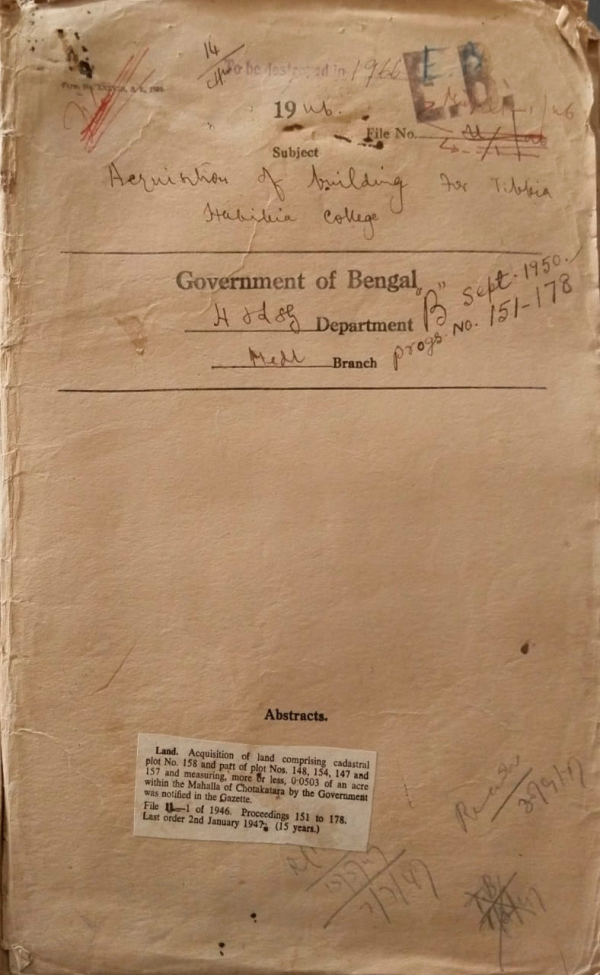 14
To be destroyed in 1966
E.B.
1946.
File No.
Subject
Acquisition of building for Tibbia
Habibia College
Government of Bengal
Department
Medl Branch
"B" Sept. 1950.
Progs. No. 151-178
Abstracts.
Land. Acquisition of land comprising cadastral
plot No. 158 and part of plot Nos. 148, 154, 147 and
157 and measuring, more or less, 0·0503 of an acre
within the Mahalla of Chotakatara by the Government
was notified in the Gazette.
File 1 of 1946. Proceedings 151 to 178.
Last order 2nd January 1947. (15 years.)